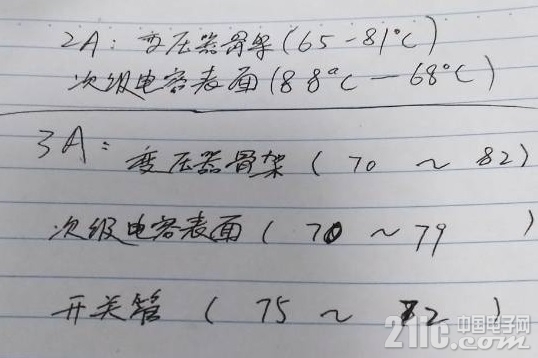 2A: 变压器骨架(65-81°C)
次级电容表面(88°C—68°C)
3A: 变压器骨架(70 ~ 82)
次级电容表面(70 ~79 )
开关管 (75 ~ 82 )
21ic 中国电子网
21ic.com